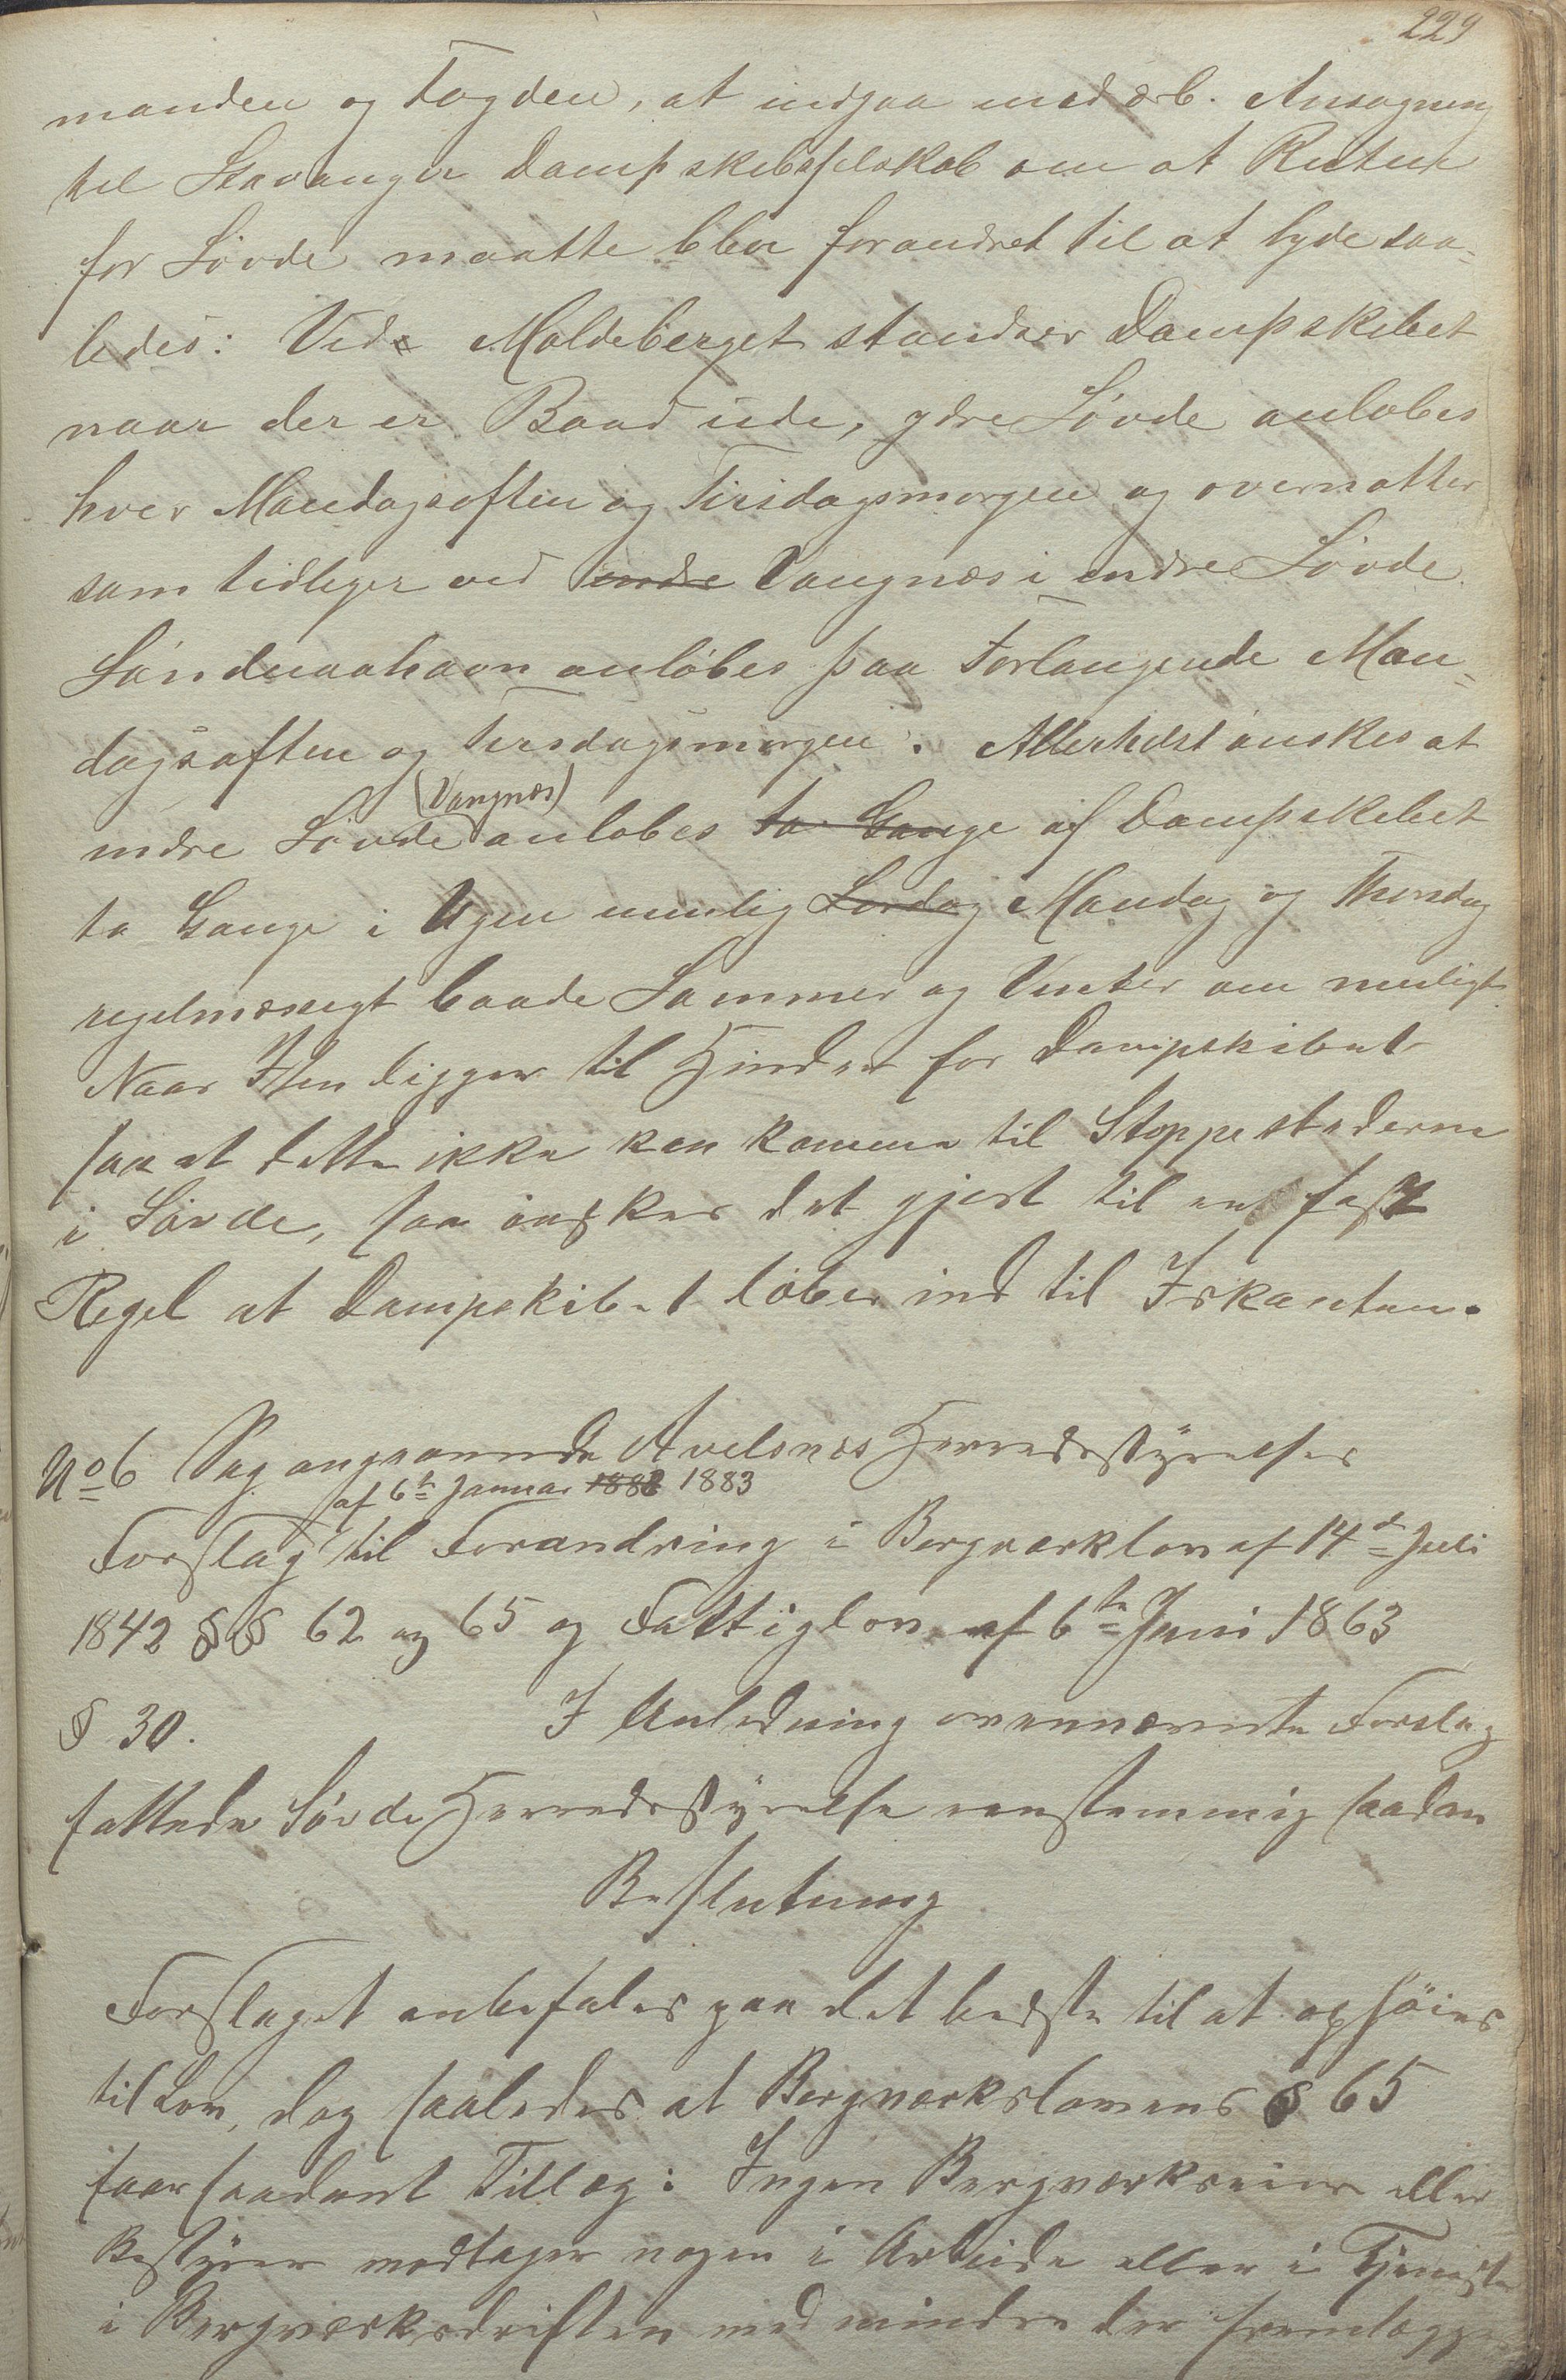 229
manden og Fogden, at indgaa med ærb. Ansøgning
til Stavanger Dampskibsselskab om at Ruten
for Søvde maatte blive forandret til at lyde saa-
ledes: Ved Moldeberget standser Dampskibet
naar der er Baad ude, ydre Søvde anløbes
hver Mandagsaften og Tirsdagsmorgen og overnatter
som tidliger ved indre Vangnæs i indre Søvde.
Søndenaahavn anløbes paa Forlangende Man-
dagsaften og Tirsdagsmorgen. Allerhelst ønskes at
(Vangnæs)
indre Søvde anløbes to Gange af Dampskibet
to Gange i Ugen nemlig Lørdag Mandag og Thorsdag
regelmæssigt baade Sommer og Vinter om muligt.
Naar Isen ligger til Hinder for Dampskibet
saa at dette ikke kan komme til Stoppestederne
i Søvde, saa ønskes det gjort til en fast
Regel at Dampskibet løber ind til Iskanten.
No 6 Sag angaaende Avelsnæs Herredsstyrelses
af 6te Januar 1882 1883
Forslag til Forandring i Bergværkslov af 14de Juli
1842 §§ 62 og 65 og Fattiglov af 6te Juni 1863
§ 30. I Anledning ovennævnte Forslag
fattede Søvde Herredsstyrelse eenstemmig saadan
Beslutning
Forslaget anbefales paa det bedste til at ophøies
til Lov, dog saaledes at Bergværkslovens § 65
faar saadant Tillæg: Ingen Bergværkseier eller
Bestyrer modtager nogen i Arbeide eller i Tjeneste
i Bergværksdriften med mindre der fremlægges